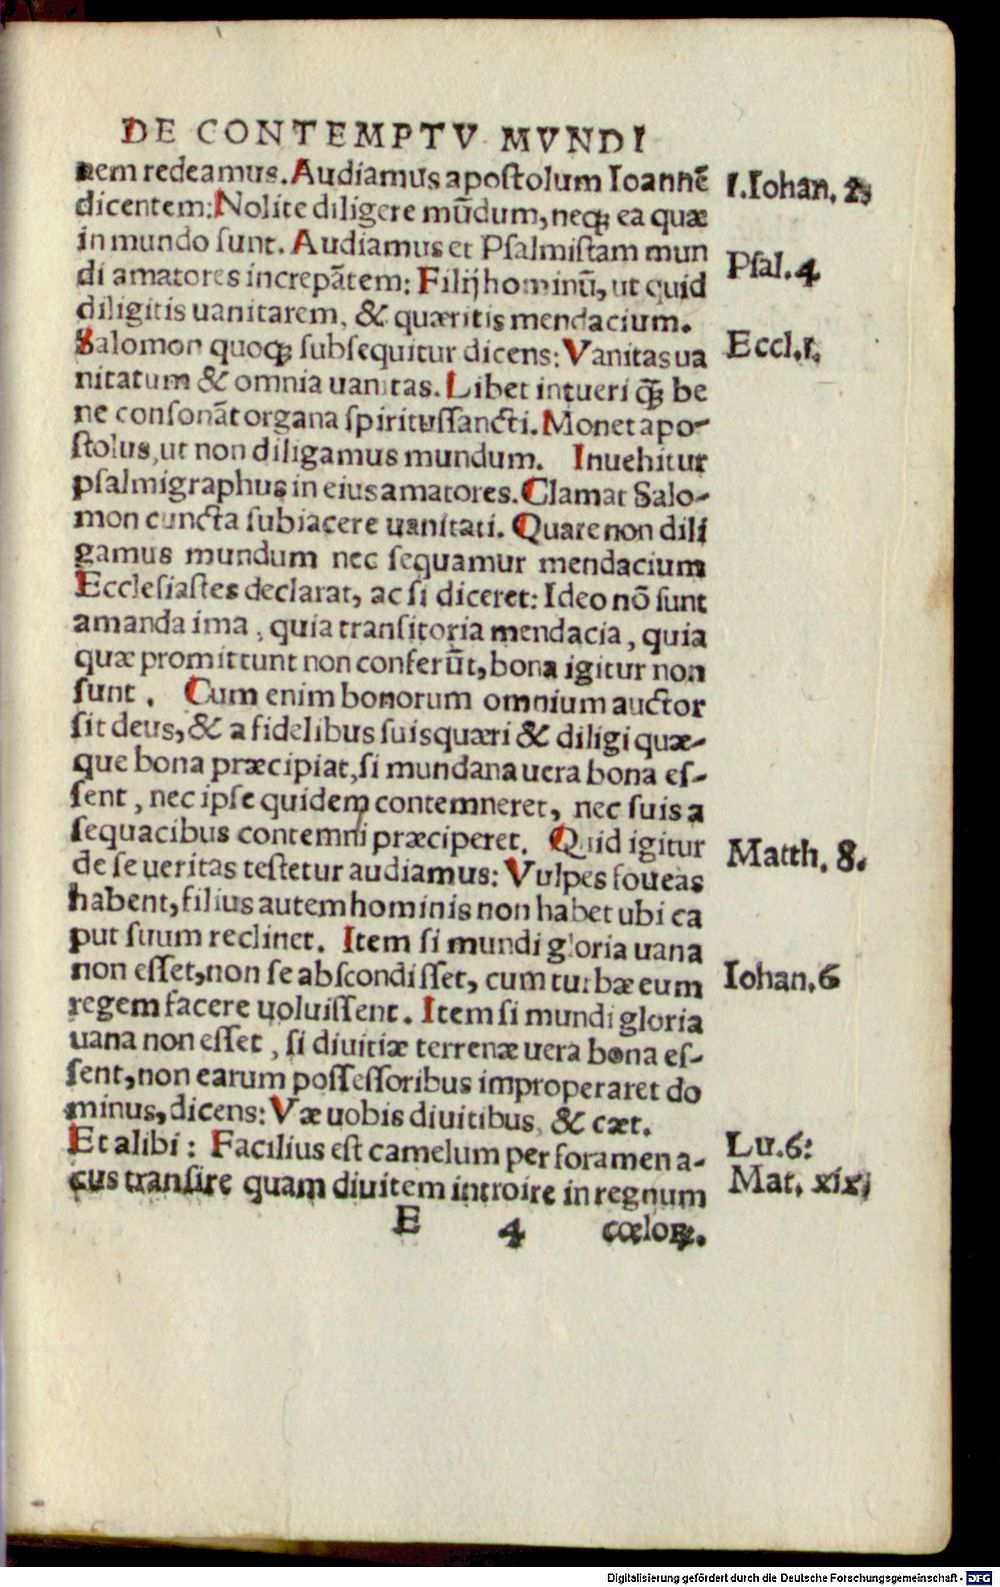 DE CONTEMPTV MVNDI
nem redeamus. Audiamus apostolum Ioannē
I. Iohan. 2.
dicentem: Nolite diligere mūdum, neq; ea quæ
in mundo sunt. Audiamus et Psalmistam mun
Psal. 4
di amatores increpātem: Filij hominū, ut quid
diligitis uanitatem, & quæritis mendacium.
Salomon quoq; subsequitur dicens: Vanitas ua
Eccl. 1.
nitatum & omnia uanitas. Libet intueri q̄ be
ne consonāt organa spiritussancti. Monet apo-
stolus, ut non diligamus mundum. Inuehitur
psalmigraphus in eius amatores. Clamat Salo-
mon cuncta subiacere uanitati. Quare non dili
gamus mundum nec sequamur mendacium
Ecclesiastes declarat, ac si diceret: Ideo nō sunt
amanda ima, quia transitoria mendacia, quia
quæ promittunt non conferūt, bona igitur non
sunt. Cum enim bonorum omnium auctor
sit deus, & a fidelibus suis quæri & diligi quæ-
que bona præcipiat, si mundana uera bona es-
sent, nec ipse quidem contemneret, nec suis a
sequacibus contemni præciperet. Quid igitur
de se ueritas testetur audiamus: Vulpes foueas
Matth. 8.
habent, filius autem hominis non habet ubi ca
put suum reclinet. Item si mundi gloria uana
non esset, non se abscondisset, cum turbæ eum
Iohan. 6
regem facere uoluissent. Item si mundi gloria
uana non esset, si diuitiæ terrenæ uera bona es-
sent, non earum possessoribus improperaret do
minus, dicens: Væ uobis diuitibus, & cæt.
Et alibi: Facilius est camelum per foramen a-
Lu. 6:
cus transire quam diuitem introire in regnum
Mat. xix;
E 4 cœloꝝ.
Digitalisierung gefördert durch die Deutsche Forschungsgemeinschaft - DFG